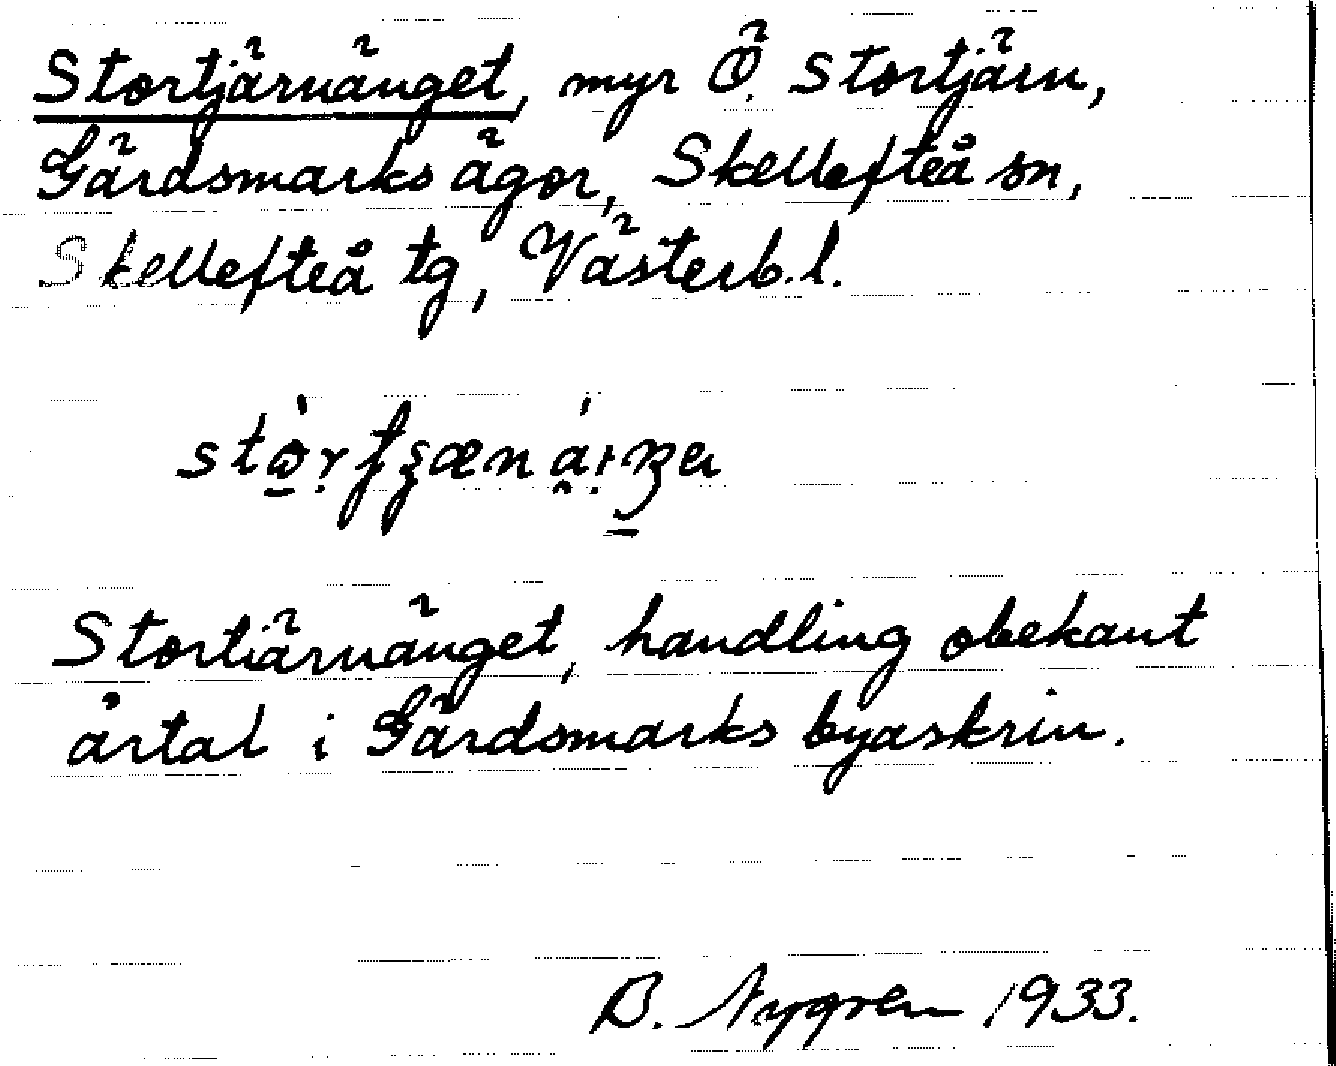 Stortjärnänget, myr Ö. Stortjärn,
Gärdsmarks ägor, Skellefteå sn,
Skellefteå tg, Västerb. l.
Stortiärnänget, handling obekant
årtal i Gärdsmarks byaskrin.
B. Nygren 1933.